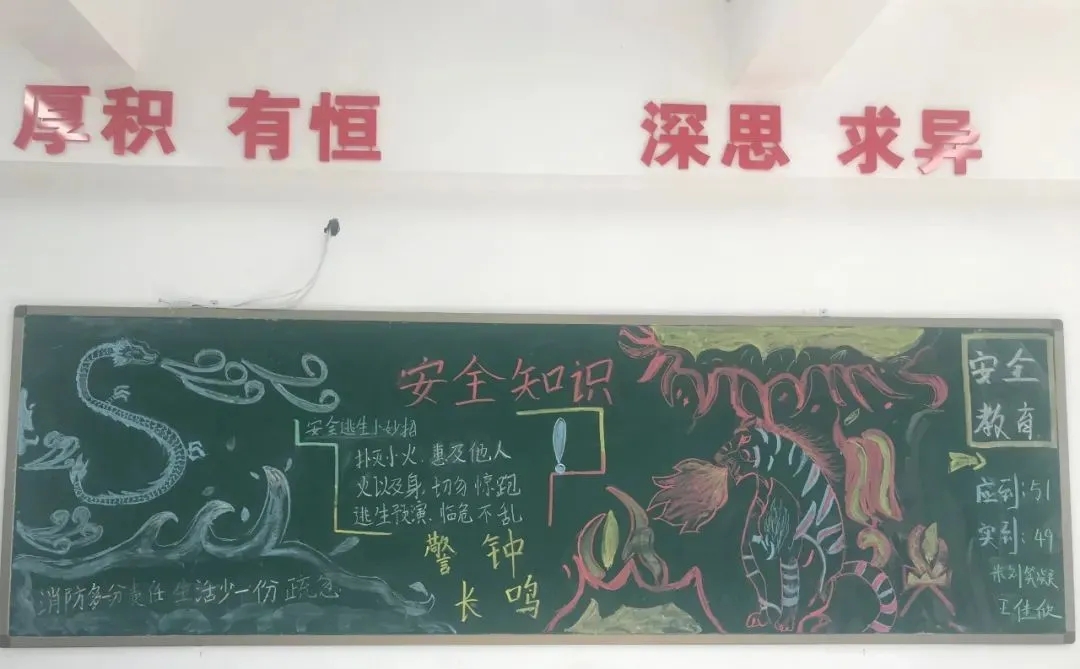 厚积 有恒 深思 求异
安全知识
安全逃生小妙招
扑灭小火，惠及他人
火以及身，切勿惊跑
逃生预演，临危不乱
警钟
长鸣
消防多一分责任 生活少一份疏忽
安全
教育
应到：51
实到：49
王佳欣